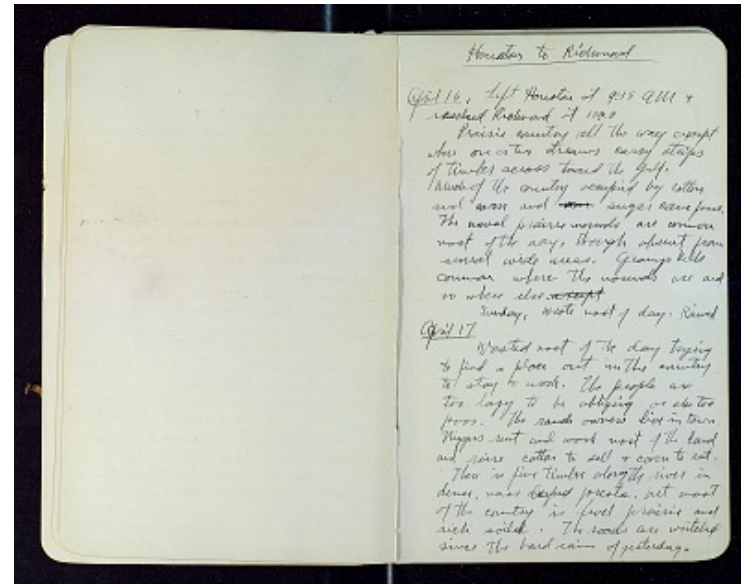 Houston to Richmond
April 16, Left Houston at 9:15 AM &
reached Richmond at 10:20
Prairie country all the way except
where one or two streams carry strips
of timber across toward the Gulf.
Much of the country occupied by cotton
and corn and sugar cane farms.
The usual prairie mounds are common
most of the way, though absent from
several wide areas. Geomys hills
common where the mounds are and
no where else except
Sunday, wrote most of day. Rained
April 17
Wasted most of the day trying
to find a place out in the country
to stay & work. The people are
too lazy to be obliging or else too
poor. The ranch owners live in town.
Niggers rent and work most of the land
and raise cotton to sell & corn to eat.
There is fine timber along the river in
dense, forests, but most
of the country is level prairie and
rich soil. The roads are wretched
since the hard rains of yesterday.